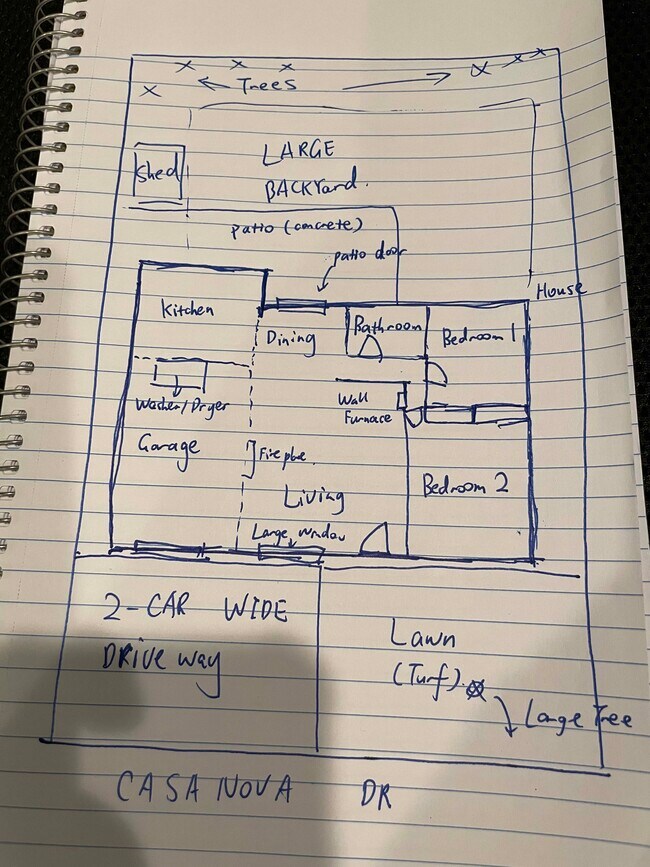 Trees
Shed
LARGE
BACKYard.
patio (concrete)
patio door
House
Kitchen
Dining
Bathroom
Bedroom 1
Washer/Dryer
Wall
Furnace
Garage
Fireplce
Living
Bedroom 2
Large window
2-CAR WIDE
DRiveway
Lawn
(Turf).
Large Tree
CASANOVA DR